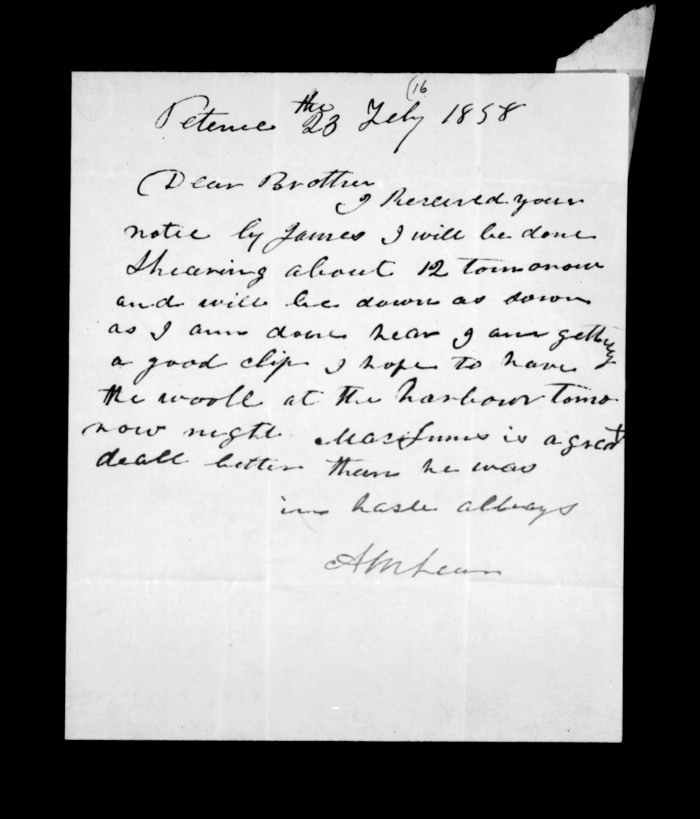 (16
Petene the 23 Feby 1858
Dear Brother
I Received your
note by James I will be done
Shearing about 12 tomorrow
and will be down as sown
as I am done hear I am getting
a good clip I hope to have
the wooll at the harbour tomo
row night MacInnis is a great
deall better than he was
in haste allways
AMcLean